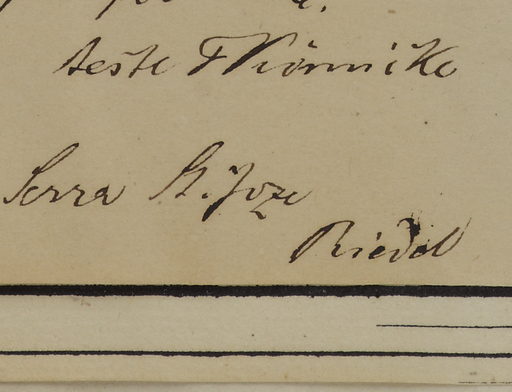 teste F Körnicke
Serra St. Joze
Riedel